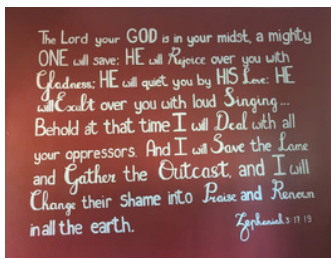 The Lord your GOD is in your midst, a mighty
ONE will save; HE will Rejoice over you with
Gladness; HE will quiet you by HIS Love; HE
will Exult over you with loud Singing...
Behold at that time I will Deal with all
your oppressors. And I will Save the Lame
and Gather the Outcast, and I will
Change their shame into Praise and Renown
in all the earth.
Zephaniah 3:17 19